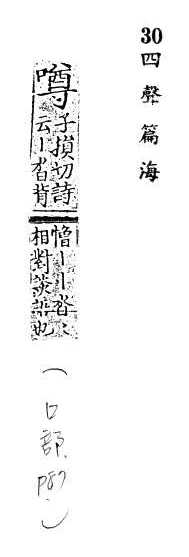 30四聲篇海
噂
子損切詩
云丨沓背
憎丨丨沓〻
相對談語也
(口部 P87)